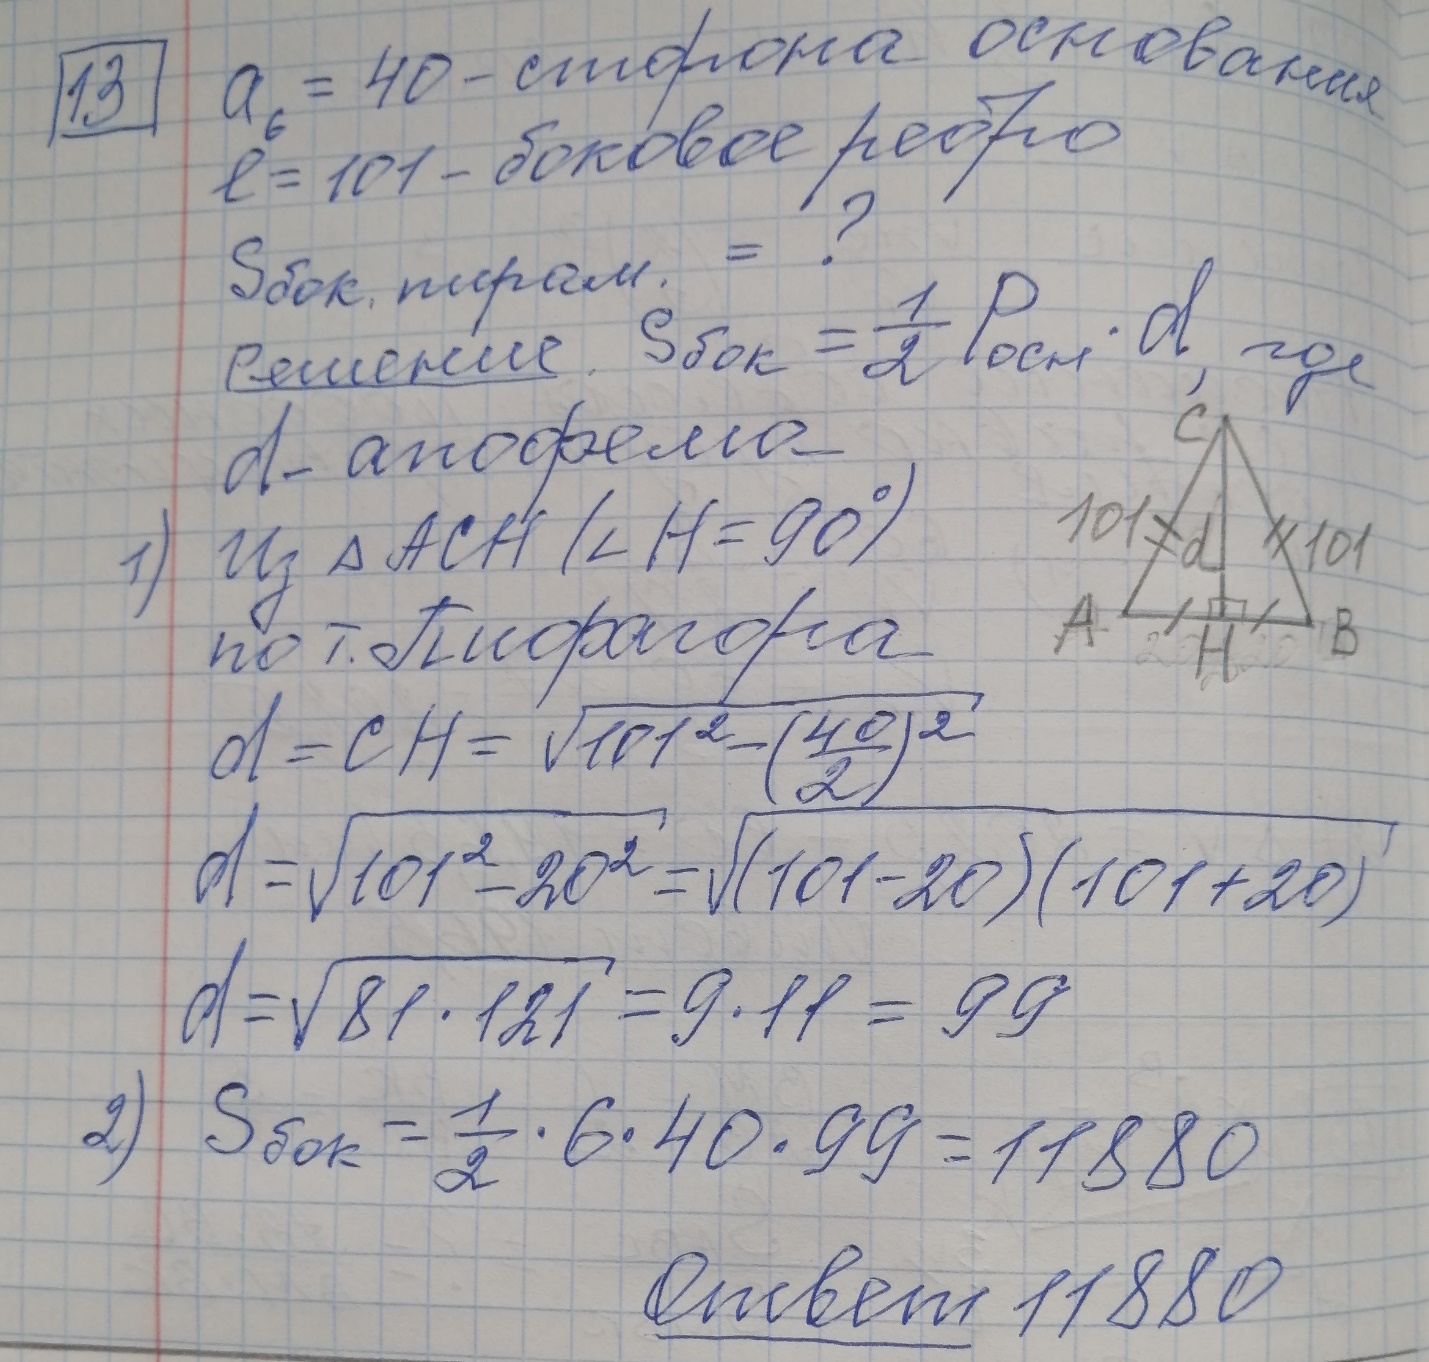 13 a₆ = 40 - сторона основания
ℓ = 101 - боковое ребро
Sбок. пирам. = ?
Решение. Sбок = 1/2 Pосн · d, где
d - апофема
1) Из △ACH (∠H = 90°)
по т. Пифагора
d = CH = √(101² - (40/2)²)
d = √(101² - 20²) = √((101-20)(101+20))
d = √(81 · 121) = 9 · 11 = 99
2) Sбок = 1/2 · 6 · 40 · 99 = 11880
Ответ 11880
C
101 d 101
A H B
20 20